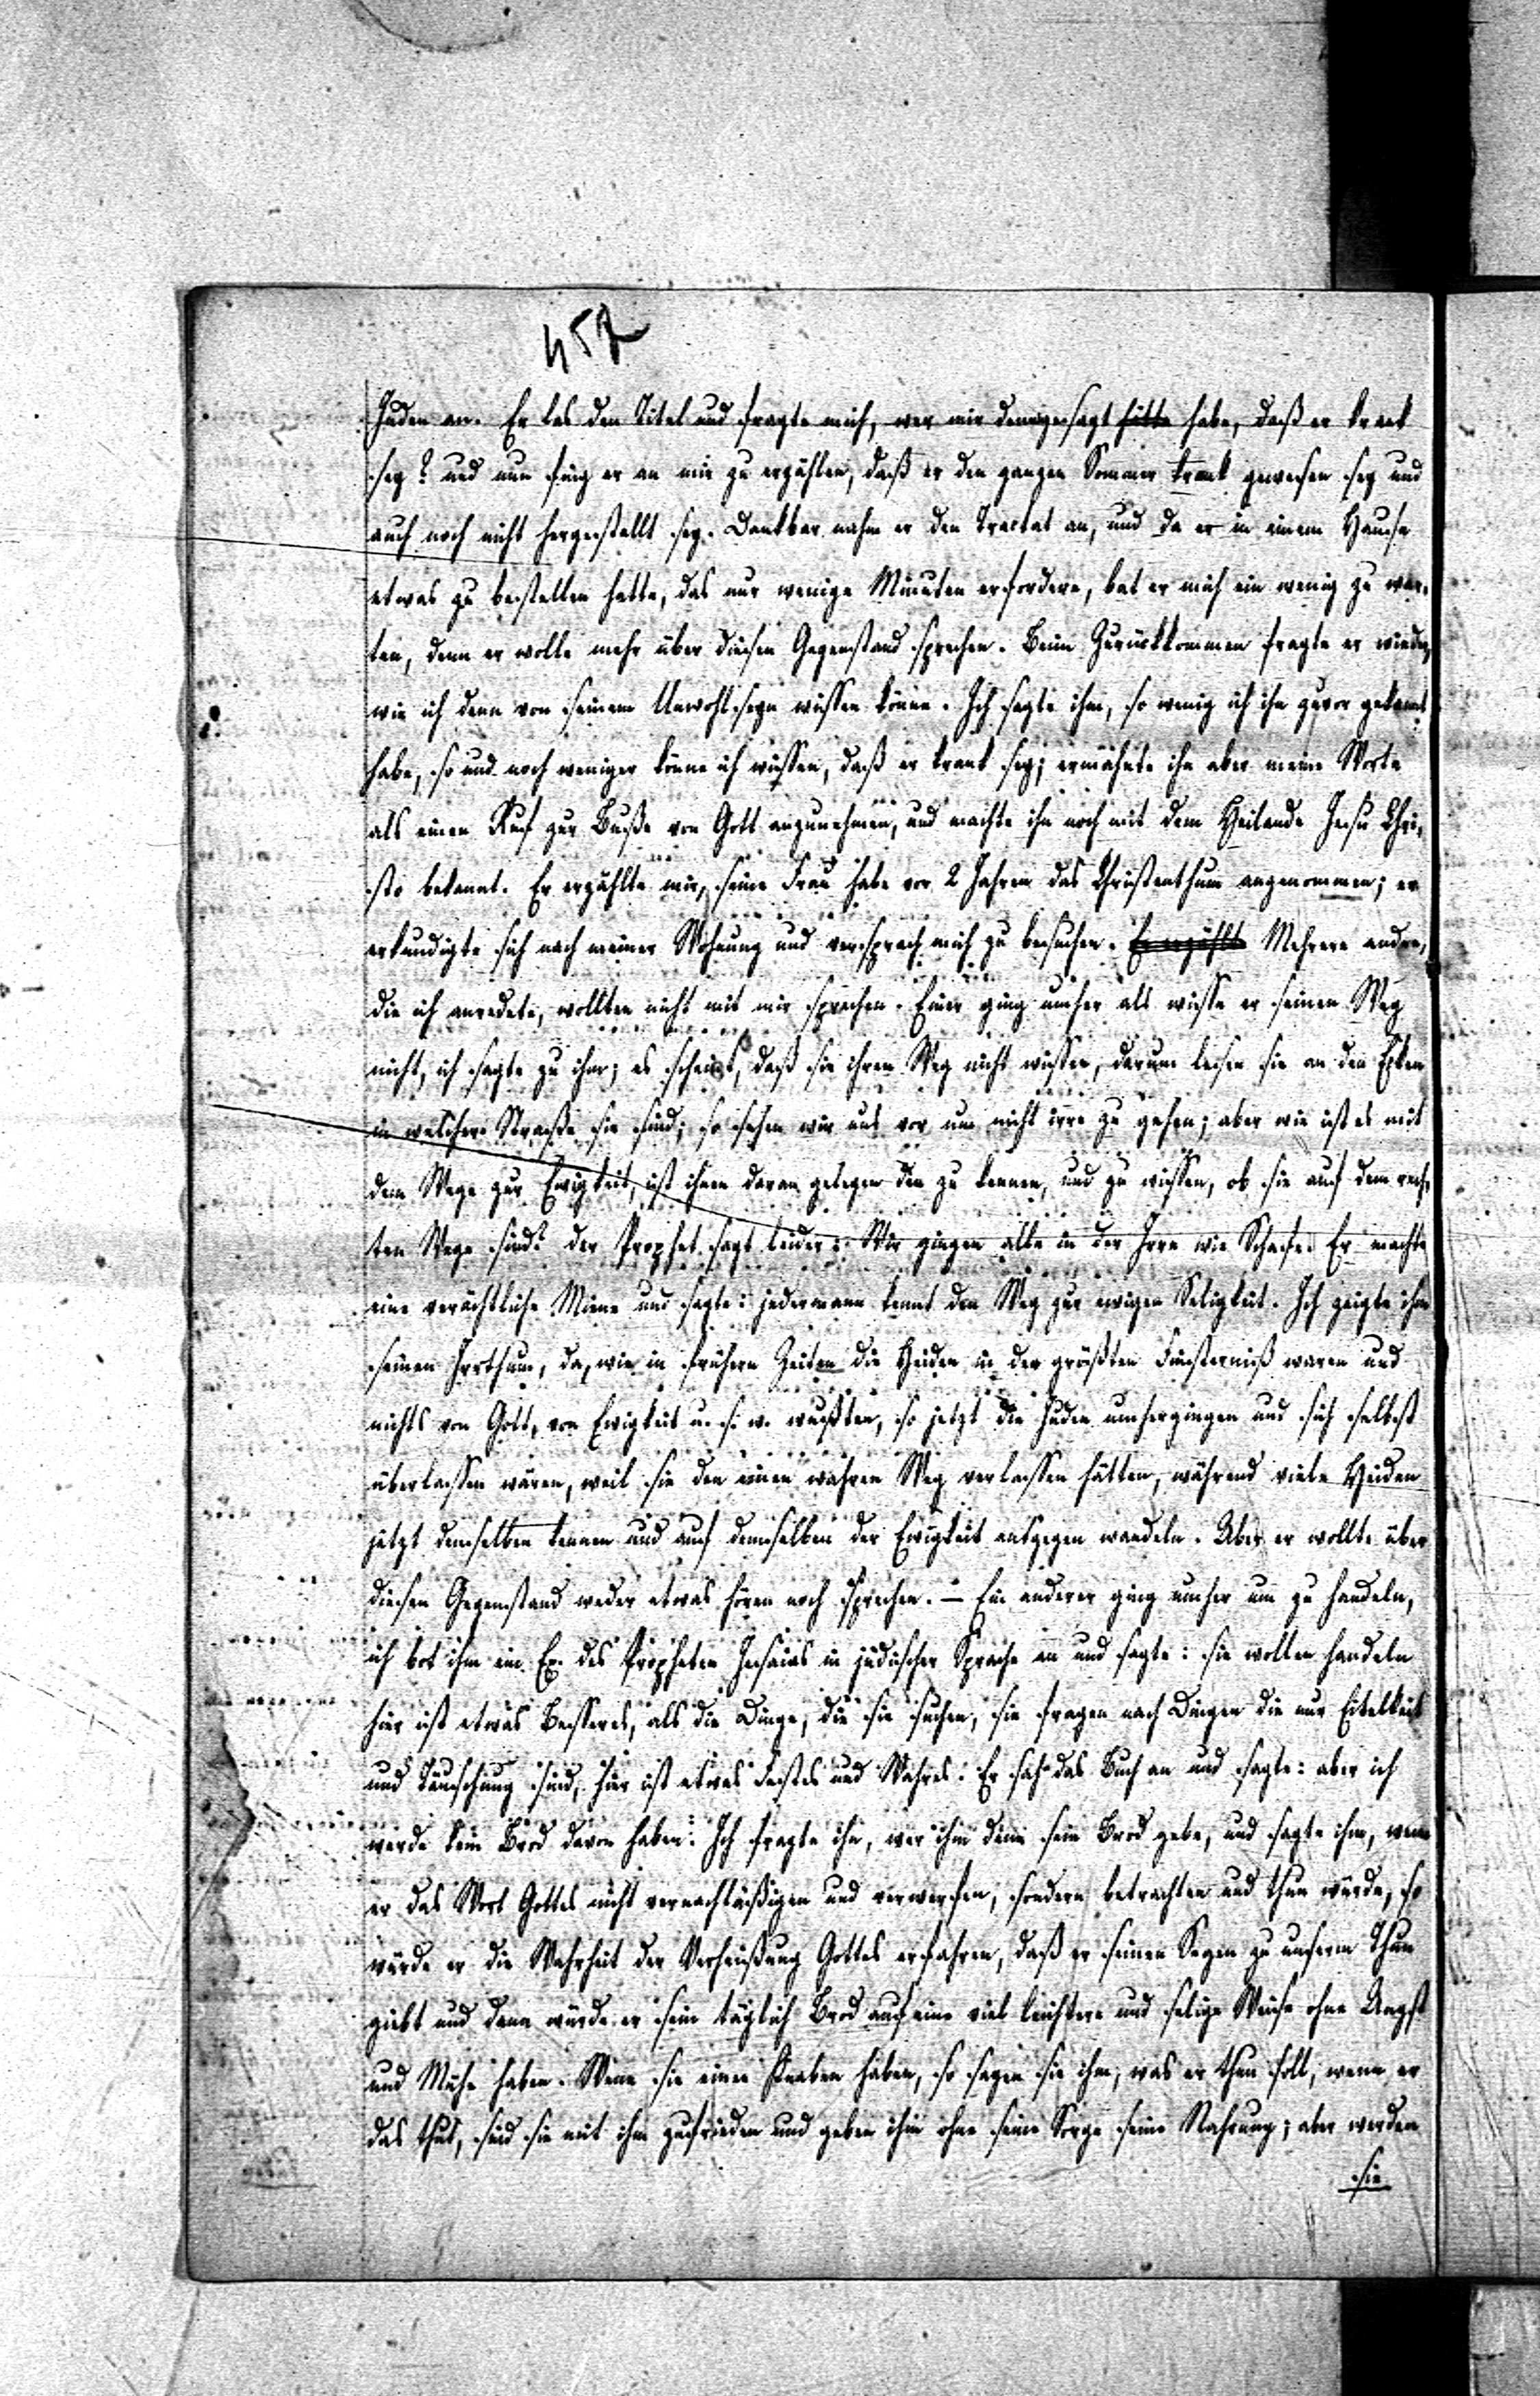 457
Juden an. Er las den Titel und fragte mich, wer mir denn gesagt hätte habe, daß er krank
sey? und nun fing er an mir zu erzählen, daß er den ganzen Sommer krank gewesen sey und
auch noch nicht hergestellt sey. Dankbar nahm er den Tractat an, und da er in einem Hause
etwas zu bestellen hatte, das nur wenige Minuten erfordere, bat er mich ein wenig zu war-
ten, denn er wolle mehr über diesen Gegenstand sprechen. Beim Zurückkommen fragte er wieder,
wie ich denn von seinem Unwohlseyn wissen könne. Ich sagte ihm, so wenig ich ihn zuvor gekannt
habe, so und noch weniger könne ich wissen, daß er krank sey; ermahnte ihn aber meine Worte
als einen Ruf zur Buße von Gott anzunehmen, und machte ihn noch mit dem Heilande Jesu Chri-
sto bekannt. Er erzählte mir, seine Frau habe vor 2 Jahren das Christenthum angenommen; er
erkundigte sich nach meiner Wohnung und versprach mich zu besuchen. Er erzählte Mehrere andre,
die ich anredete, wollten nicht mit mir sprechen. Einer ging umher als wisse er seinen Weg
nicht, ich sagte zu ihm; es scheint, daß sie ihren Weg nicht wissen, darum lesen sie an den Ecken
in welcher Straße sie sind; so sehen wir uns vor um nicht irre zu gehen; aber wie ist es mit
dem Wege zur Ewigkeit, ist ihnen daran gelegen den zu kennen, und zu wissen, ob sie auf dem rech-
ten Wege sind? der Prophet sagt leider: Wir gingen alle in der Irre wie Schafe. Er machte
eine verächtliche Miene und sagte: jedermann kennt den Weg zur ewigen Seligkeit. Ich zeigte ihm
seinen Irrthum, da, wie in frühern Zeiten die Heiden in der größten Finsterniß waren und
nichts von Gott, von Ewigkeit u. s. w. wußten, so jetzt die Juden umhergingen und sich selbst
überlassen wären, weil sie den einen wahren Weg verlassen hätten, während viele Heiden
jetzt denselben kennen und auf demselben der Ewigkeit entgegen wandeln. Aber er wollte über
diesen Gegenstand weder etwas hören noch sprechen. – Ein anderer ging umher um zu handeln,
ich bot ihm ein Ex. des Propheten Jesaias in jüdischer Sprache an und sagte: sie wollen handeln
hier ist etwas Besseres, als die Dinge, die sie suchen, sie fragen nach Dingen die nur Eitelkeit
und Täuschung sind, hier ist etwas Festes und Wahres. Er sah das Buch an und sagte: aber ich
werde kein Brod davon haben. Ich fragte ihn, wer ihm denn sein Brod gebe, und sagte ihm, wenn
er das Wort Gottes nicht vernachläßigen und verwerfen, sondern betrachten und thun würde, so
würde er die Wahrheit der Verheißung Gottes erfahren, daß er seinen Segen zu unserm Thun
giebt und dann würde er sein täglich Brod auf eine viel leichtere und selige Weise ohne Angst
und Mühe haben. Wenn sie einen Knaben haben, so sagen sie ihm, was er thun soll, wenn er
das thut, sind sie mit ihm zufrieden und geben ihm ohne seine Sorge seine Nahrung; aber werden
sie